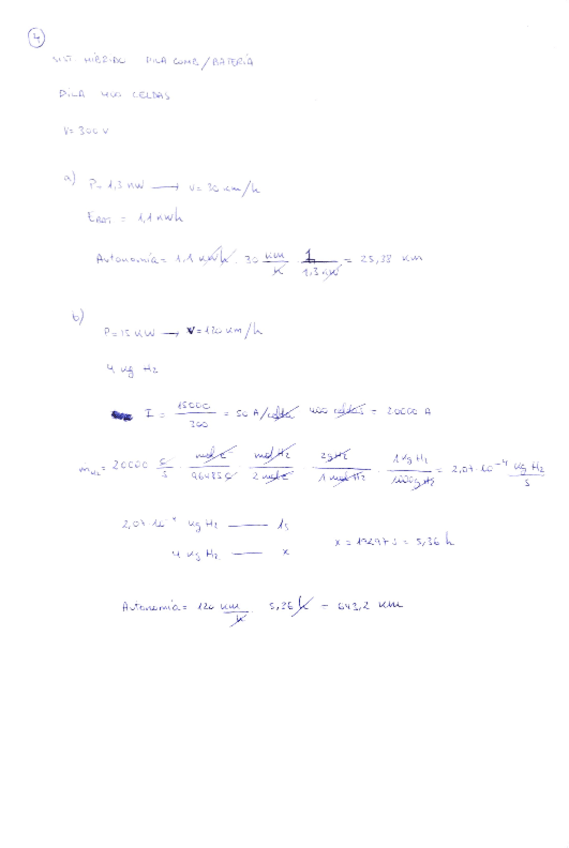 4
SIST HÍBRIDO PILA COMB/BATERÍA
PILA 400 CELDAS
V= 300 V
a) P= 1,3 kW → v= 30 km/h
EBAT = 1,1 kWh
Autonomía = 1,1 kWh · 30 km/h · 1/1,3 kW = 25,38 km
b) P=15 kW → v=120 km/h
4 kg H2
I = 15000/300 = 50 A/celda · 400 celdas = 20000 A
ṁH2 = 20000 C/s · mol e-/96485 C · mol H2/2 mol e- · 2g H2/1 mol H2 · 1 kg H2/1000g H2 = 2,07·10^-4 kg H2/s
2,07·10^-4 kg H2 —— 1s
4 kg H2 —— x x = 19297 s = 5,36 h
Autonomía = 120 km/h · 5,36 h = 643,2 km